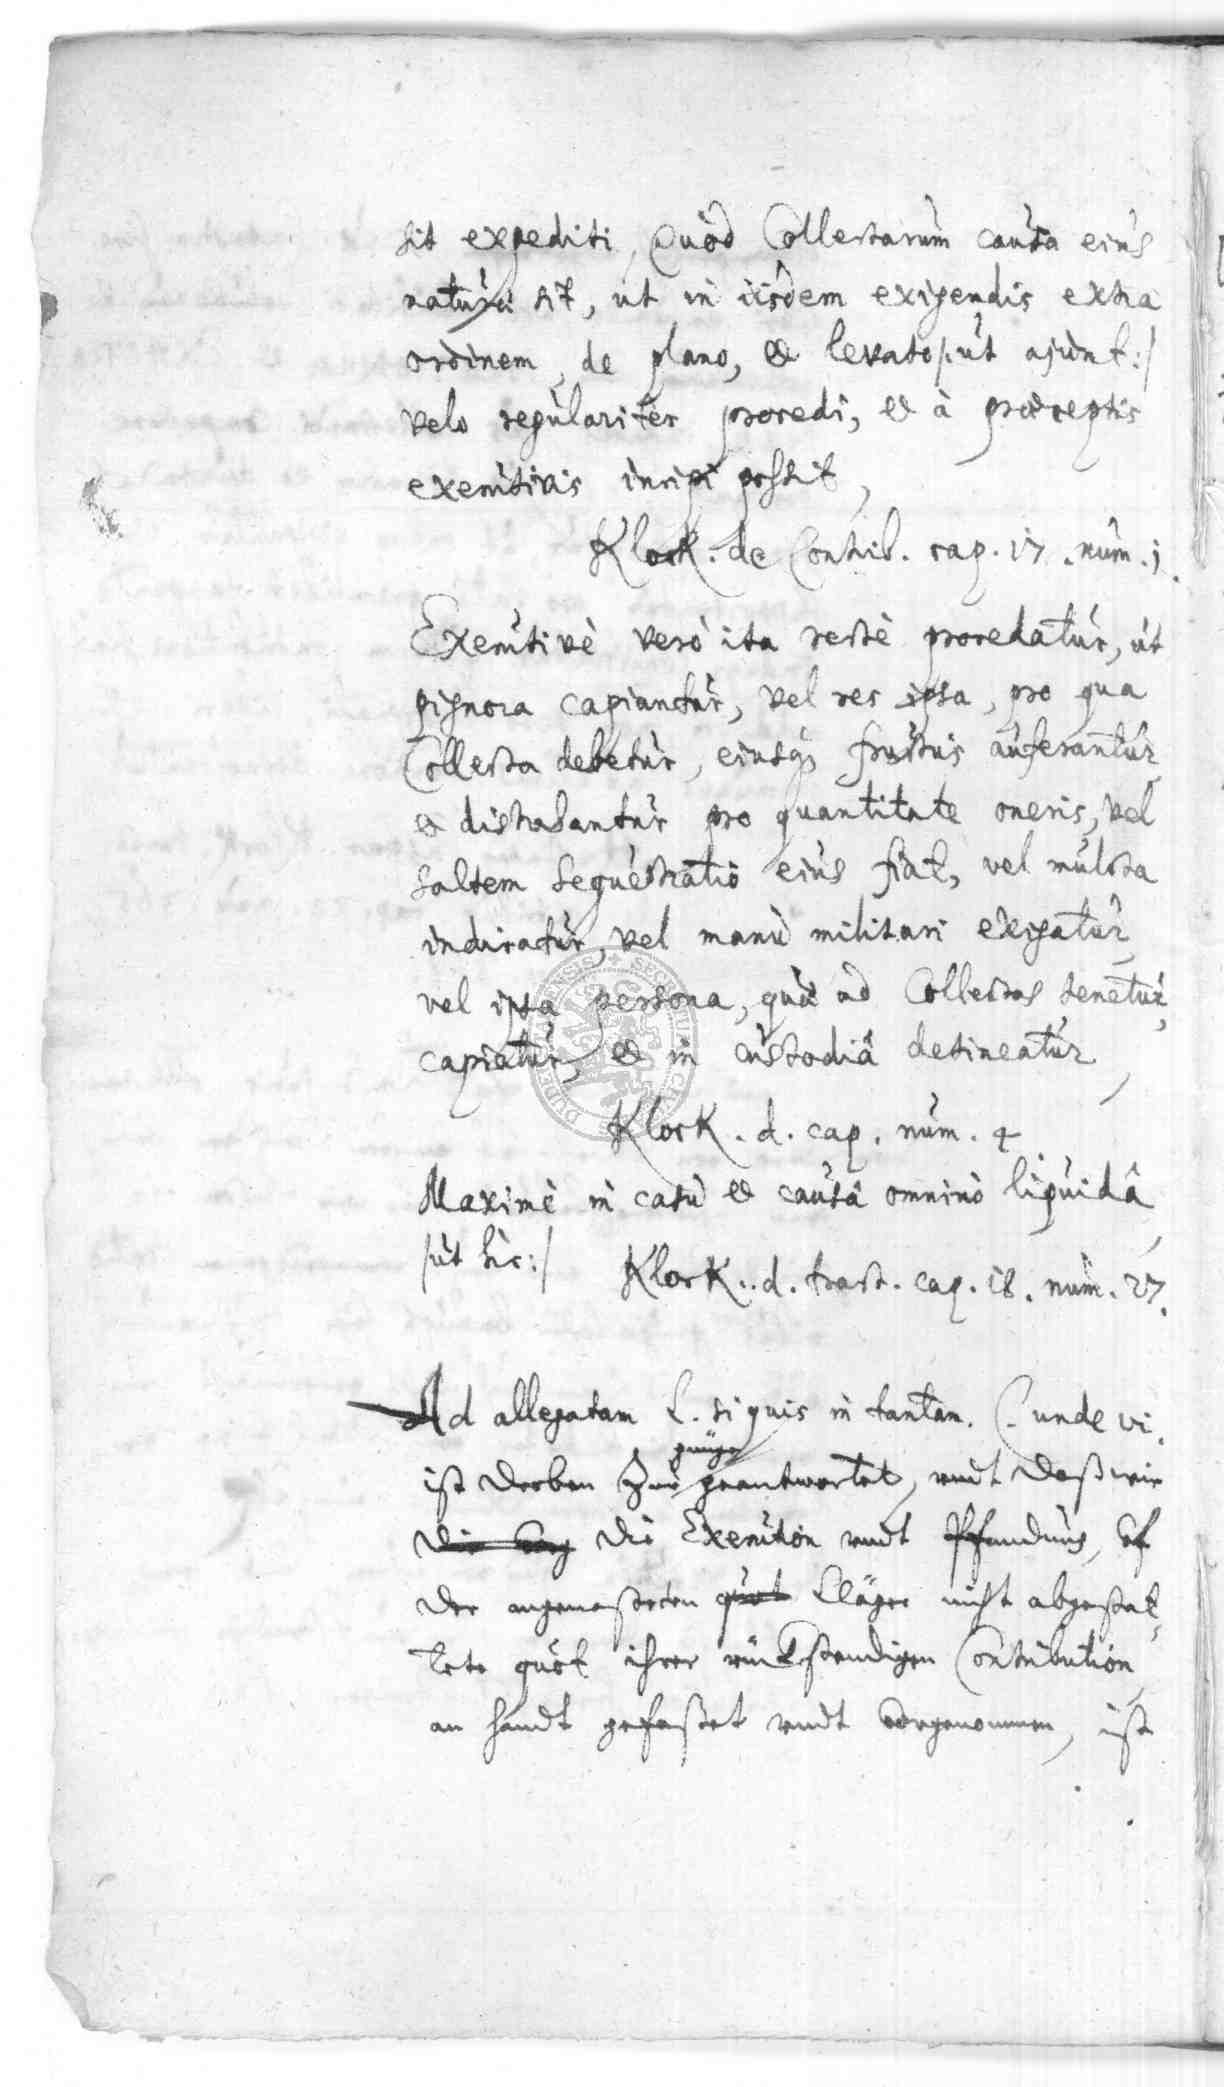 sit expediti, Quòd Collectarum causa eius
natura sit, ut in iisdem exigendis extra
ordinem, de plano, et levato /: ut ajunt :/
velo regulariter procedi, et à præceptis
executivis incipi possit,
Klock. de Contrib. cap. 17. num. 1.
Executivè verò ita rectè procedatur, ut
pignora capiantur, vel res ipsa, pro qua
Collecta debetur, eiusq; fructus auferantur
et distrahantur pro quantitate oneris, vel
saltem sequestratio eius fiat, vel mulcta
indicatur, vel manu militari exigatur,
vel ipsa persona, quæ ad Collectas tenetur,
capiatur, et in custodiâ detineatur,
Klock. d. cap. num. 4
Maximè in casu et causâ omninò liquidâ,
/: ut hic :/ Klock. d. tract. cap. 18. num. 27.
Ad allegatam L. si quis in tantam. C. unde vi.
ist droben zur gnüge geantwortet, undt daß wir
die Execution undt Pfandung, uf
der angemaßeten Kläger nicht abgestat-
tete quot ihrer rückstendigen Contribution,
an handt gefaßet undt vorgenommen, ist